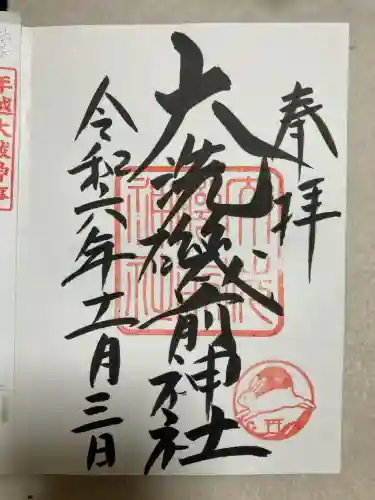 奉拝
大洗磯前神社
令和六年十一月三日
年越大祓神事